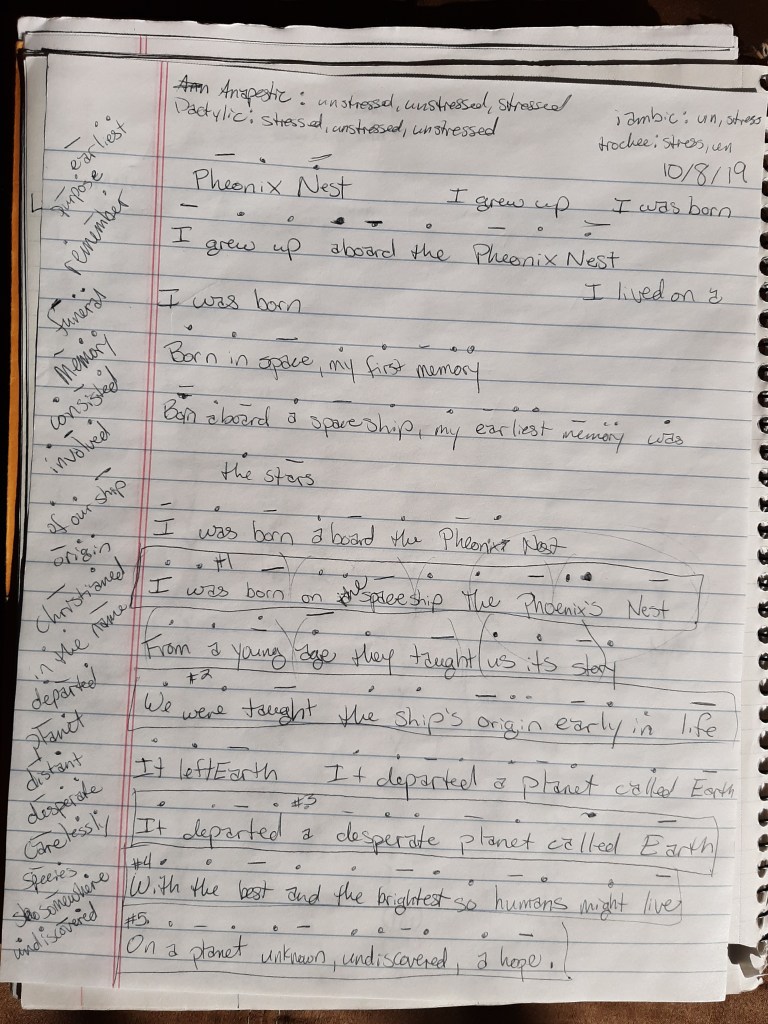 Anapestic: unstressed, unstressed, stressed
Dactylic: stressed, unstressed, unstressed
iambic: un, stress
trochee: stress, un
10/8/19
Pheonix Nest
I grew up I was born
I grew up aboard the Pheonix Nest
I lived on a
I was born
Born in space, my first memory
Born aboard a spaceship, my earliest memory was
the stars
I was born aboard the Pheonix Nest
#1
I was born on the spaceship the Phoenix's Nest
From a young age they taught us its story
#2
We were taught the ship's origin early in life
It left Earth It departed a planet called Earth
#3
It departed a desperate planet called Earth
#4
With the best and the brightest so humans might live
#5
On a planet unknown, undiscovered, a hope.
earliest
purpose
remember
funeral
memory
consisted
involved
of our ship
origin
Christianed
in the name
departed
planet
distant
desperate
carelessly
species
somewhere
undiscovered